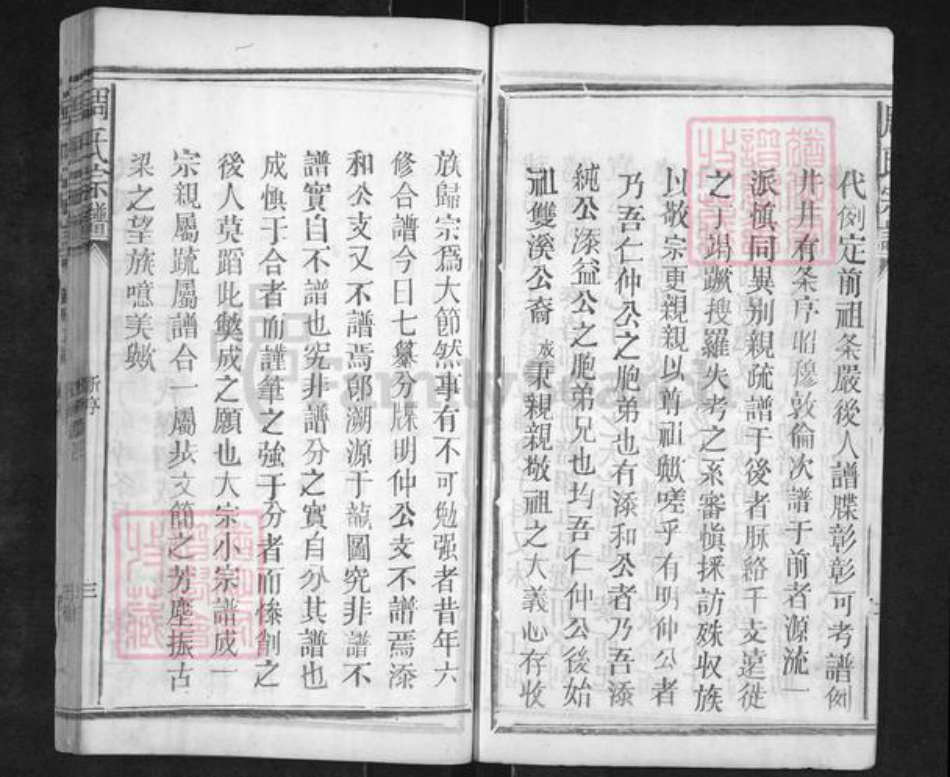 代例定前祖条嚴後人譜牒彰彰可考譜例
井井有条序昭穆敦倫次譜于前者源流一
派慎同異别親疏譜于後者脉絡千支遠徙
之丁竭蹶搜羅失考之系審慎採訪殊収族
以敬宗更親親以尊祖歟嗟乎有明仲公者
乃吾仁仲公之胞弟也有添和公者乃吾添
純公添益公之胞弟兄也均吾仁仲公後始
祖雙溪公裔成秉親親敬祖之大義心存收
族歸宗爲大節然事有不可勉强者昔年六
修合譜今日七纂分牒明仲公支不譜焉添
和公支又不譜焉卽溯源于誌圖究非譜不
譜實自不譜也究非譜分之實自分其譜也
成慎于合者而謹筆之強于分者而條創之
後人莫蹈此獘成之願也大宗小宗譜成一
宗親屬疏屬譜合一屬恭文簡之芳塵振古
梁之望族噫美歟
周氏宗譜
新序
三
FamilySearch